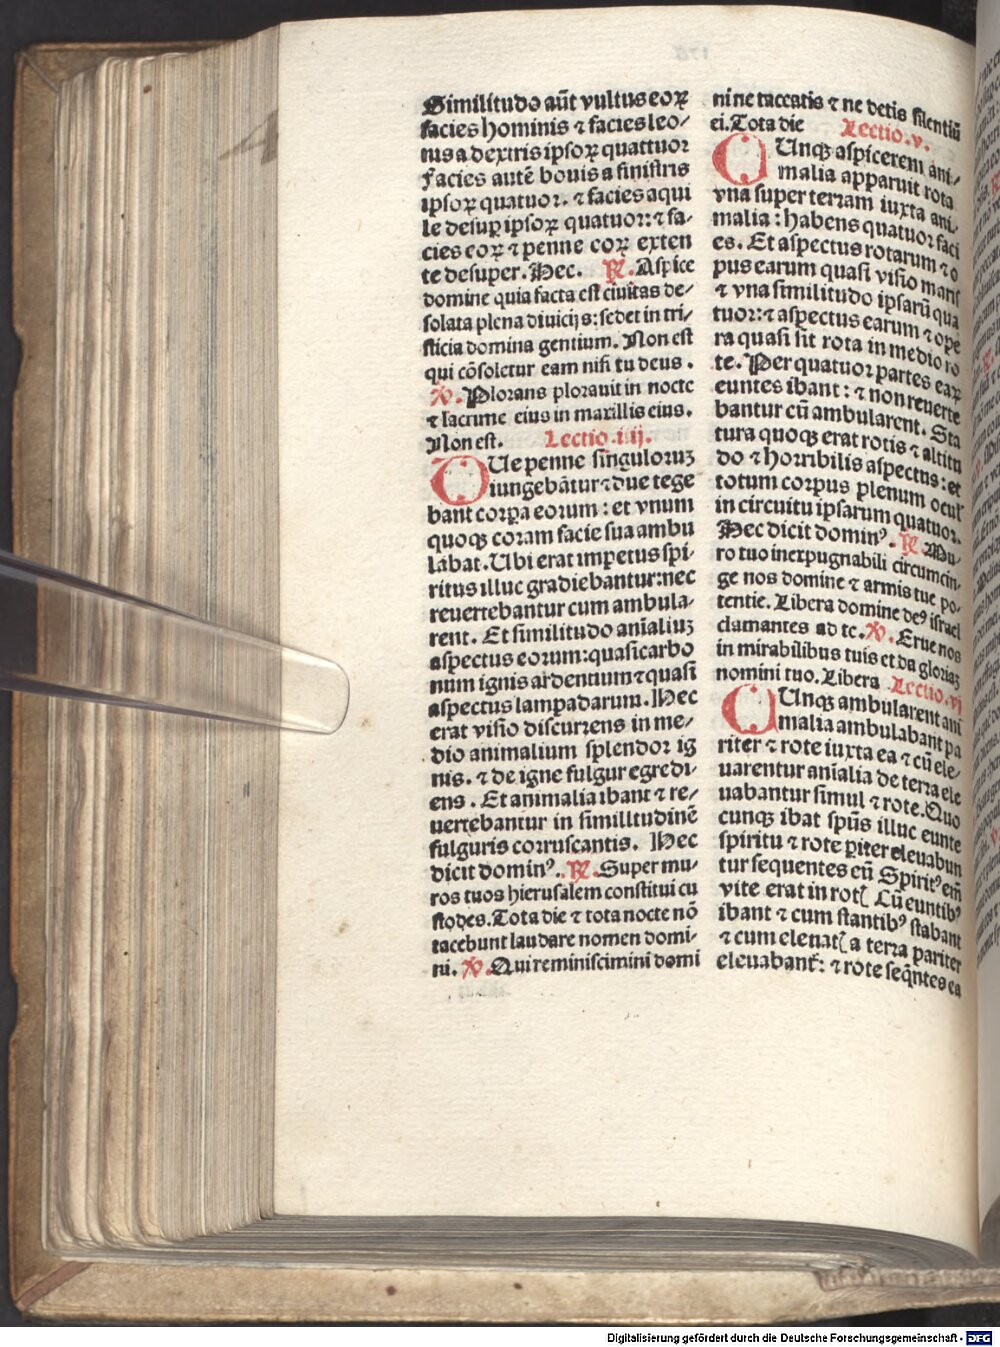 Similitudo aūt vultus eoꝝ
facies hominis ⁊ facies leo/
nis a dextris ipsoꝝ quattuor
facies autē bouis a sinistris
ipsoꝝ quatuor. ⁊ facies aqui
le desuꝑ ipsoꝝ quatuor: ⁊ fa-
cies eoꝝ ⁊ penne eoꝝ exten
te desuper. Hec. ℟. Aspice
domine quia facta est ciuitas de-
solata plena diuicijs: sedet in tri/
sticia domina gentium. Non est
qui cōsoletur eam nisi tu deus.
℣. Plorans plorauit in nocte
⁊ lacrime eius in maxillis eius.
Non est. Lectio .iiij.
DUe penne singuloruꝫ
iungebātur ⁊ due tege
bant corꝑa eorum: et vnum
quoqꝫ coram facie sua ambu
labat. Ubi erat impetus spi-
ritus illuc gradiebantur: nec
reuertebantur cum ambula-
rent. Et similitudo aīaliuꝫ
aspectus eorum: quasi carbo
num ignis ardentium ⁊ quasi
aspectus lampadarum. Hec
erat visio discurrens in me/
dio animalium splendor ig
nis. ⁊ de igne fulgur egredi-
ens. Et animalia ibant ⁊ re/
uertebantur in similltudinē
fulguris corruscantis. Hec
dicit dominꝰ. ℟. Super mu-
ros tuos hierusalem constitui cu
stodes. Tota die ⁊ tota nocte nō
tacebunt laudare nomen domi-
ni. ℣. Qui reminiscimini domi
ni ne taceatis ⁊ ne detis silentiū
ei. Tota die Lectio .v.
CUnqꝫ aspicerem ani-
malia apparuit rota
vna super terram iuxta ani-
malia: habens quatuor faci
es. Et aspectus rotarum ⁊ o
pus earum quasi visio maris
⁊ vna similitudo ipsarū qua
tuor: ⁊ aspectus earum ⁊ ope
ra quasi sit rota in medio ro
te. Per quatuor partes eaꝝ
euntes ibant: ⁊ non reuerte
bantur cū ambularent. Sta
tura quoqꝫ erat rotis ⁊ altitu
do ⁊ horribilis aspectus: et
totum corpus plenum ocul'
in circuitu ipsarum quatuor.
Hec dicit dominꝰ. ℟. Mu-
ro tuo inexpugnabili circumcin-
ge nos domine ⁊ armis tue po-
tentie. Libera domine deꝰ israel
clamantes ad te. ℣. Erue nos
in mirabilibus tuis et da gloriaꝫ
nomini tuo. Libera Lectio .vj
CUnqꝫ ambularent ani
malia ambulabant pa
riter ⁊ rote iuxta ea ⁊ cū ele/
uarentur aīalia de terra ele
uabantur simul ⁊ rote. Quo
cunqꝫ ibat spūs illuc eunte
spiritu ⁊ rote ꝑiter eleuabun
tur sequentes eū Spiritꝰ em̄
vite erat in rotꝭ Cū euntibꝰ
ibant ⁊ cum stantibꝰ stabant
⁊ cum elenatꝭ a terra pariter
eleuabant᷑: ⁊ rote seqn̄tes ea
Digitalisierung gefördert durch die Deutsche Forschungsgemeinschaft - DFG